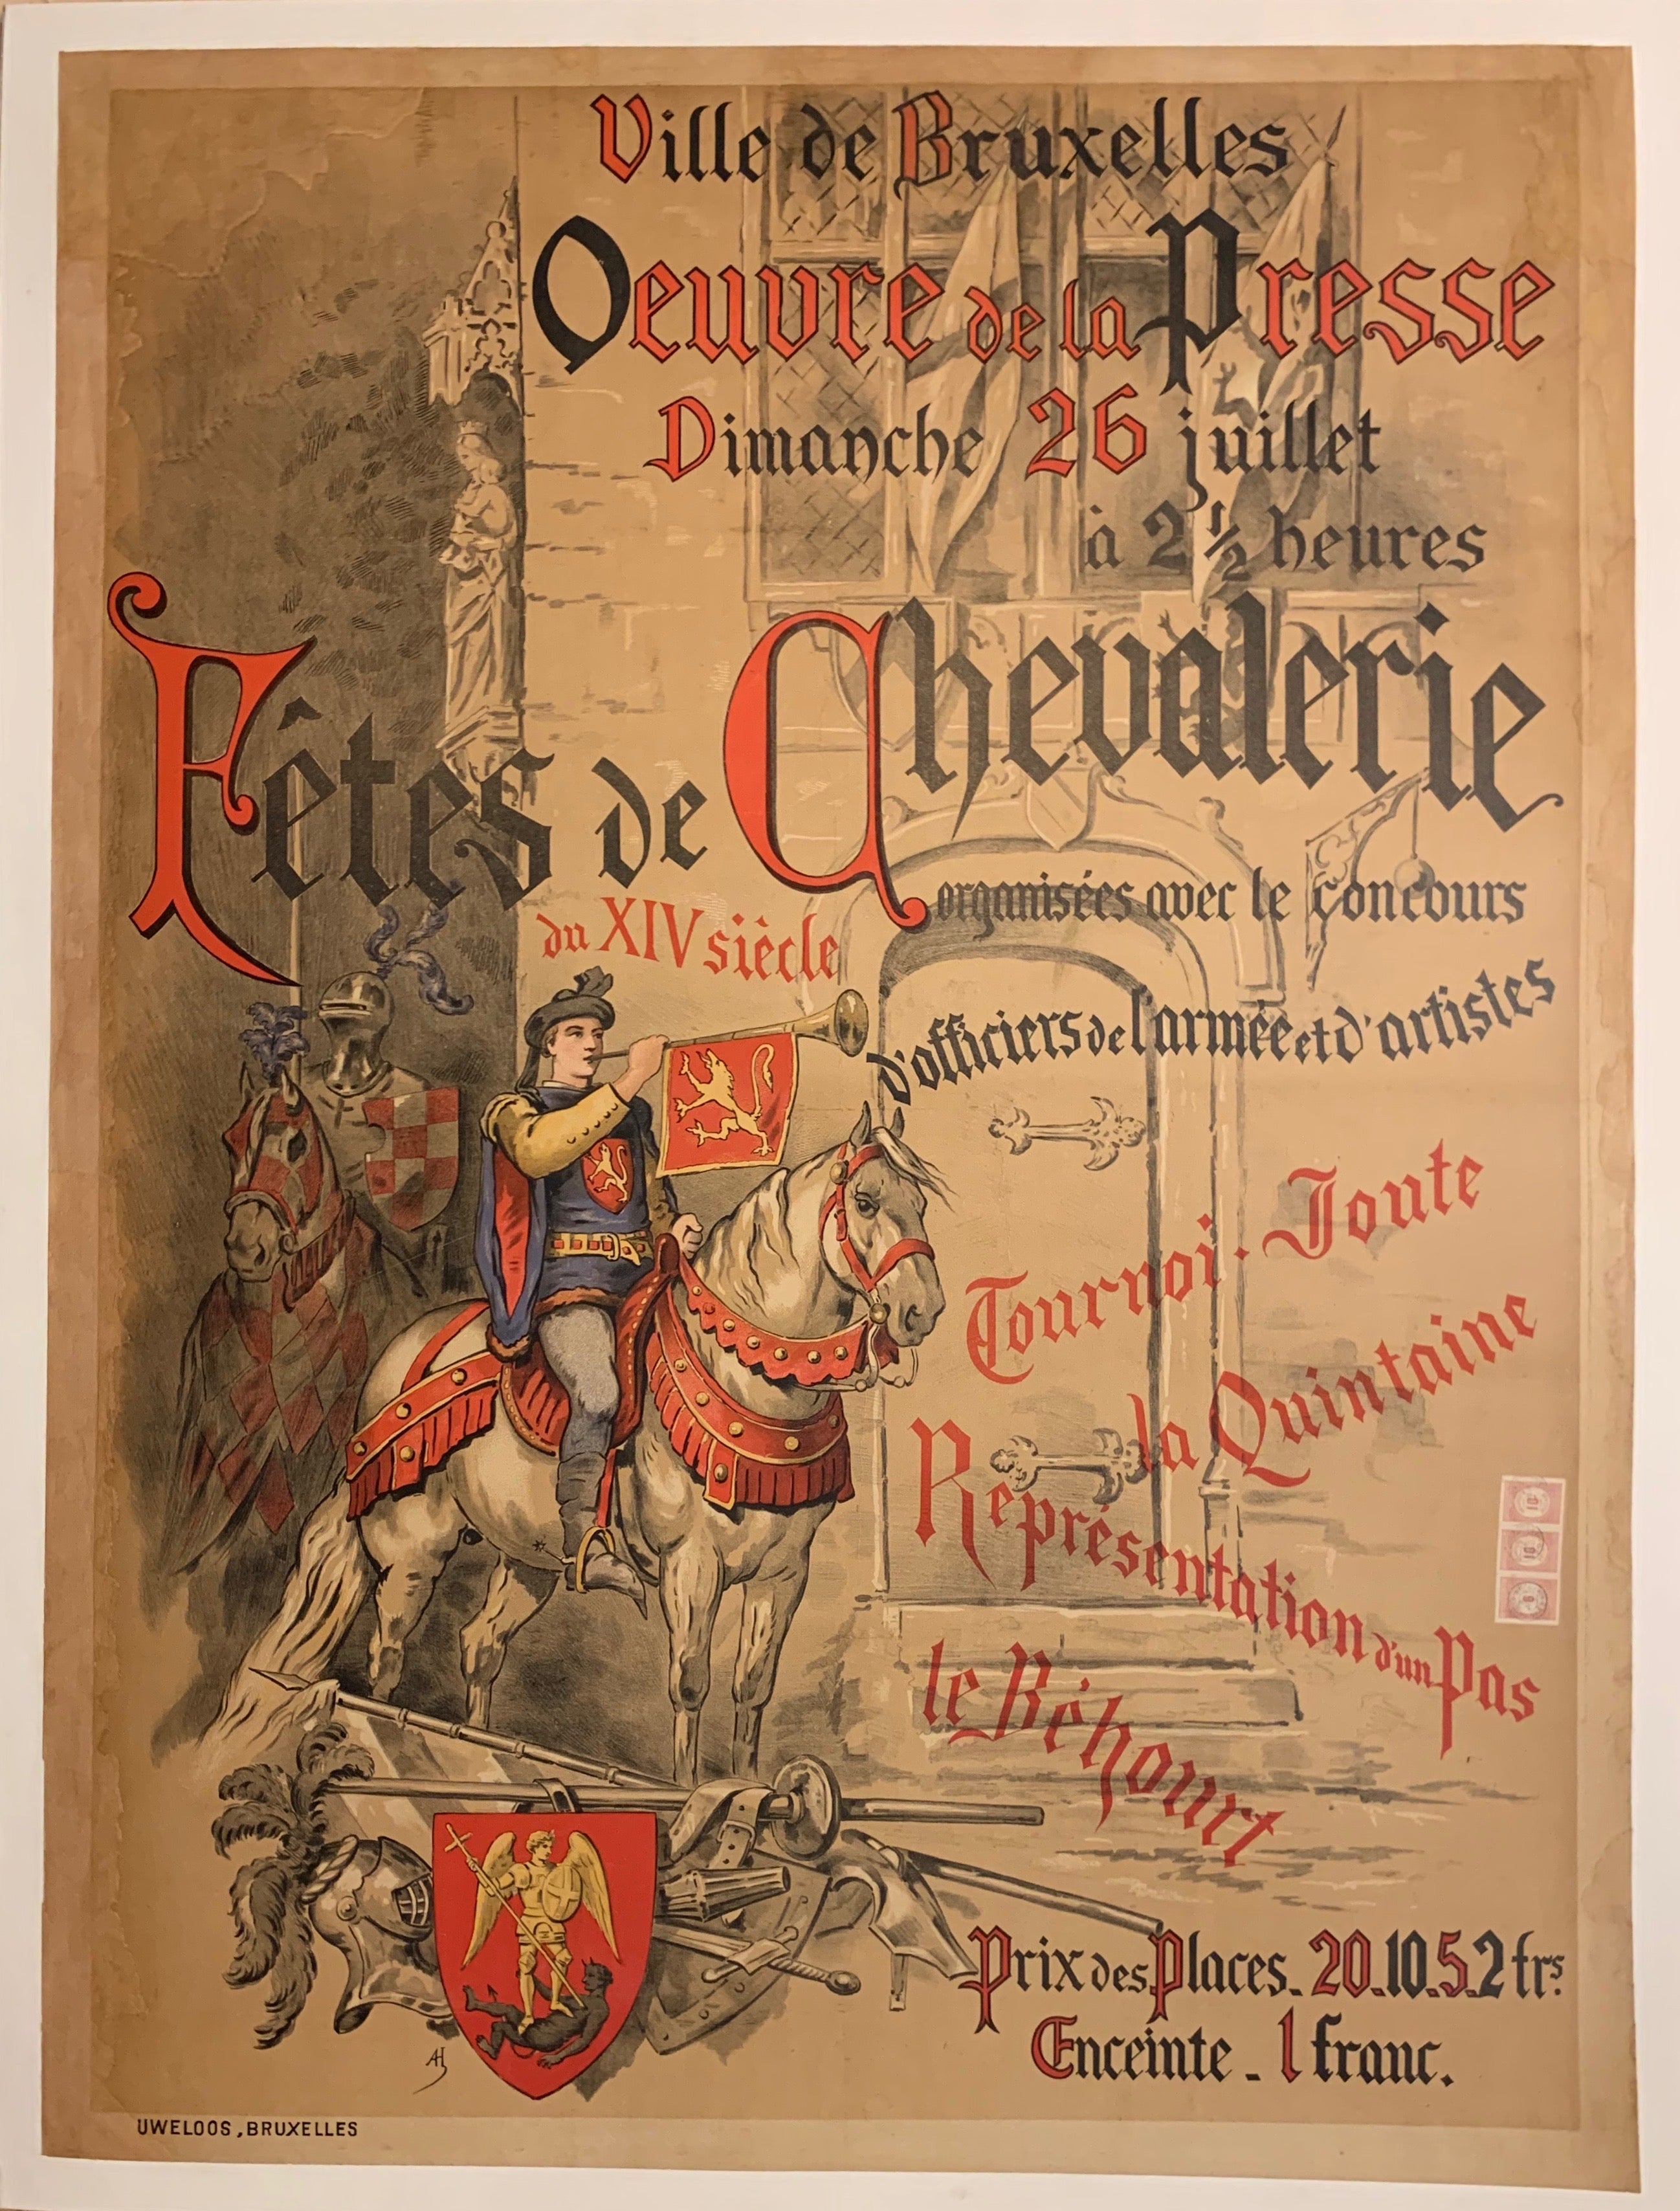 Ville de Bruxelles
Oeuvre de la Presse
Dimanche 26 juillet
à 2 ½ heures
Fêtes de Chevalerie
du XIV siècle
organisées avec le concours
d'officiers de l'armée et d'artistes
Tournoi. Joute
la Quintaine
Représentation d'un Pas
le Béhourt
Prix des Places. 20.10.5.2 frs.
Enceinte - 1 franc.
AH
UWELOOS, BRUXELLES
10
10